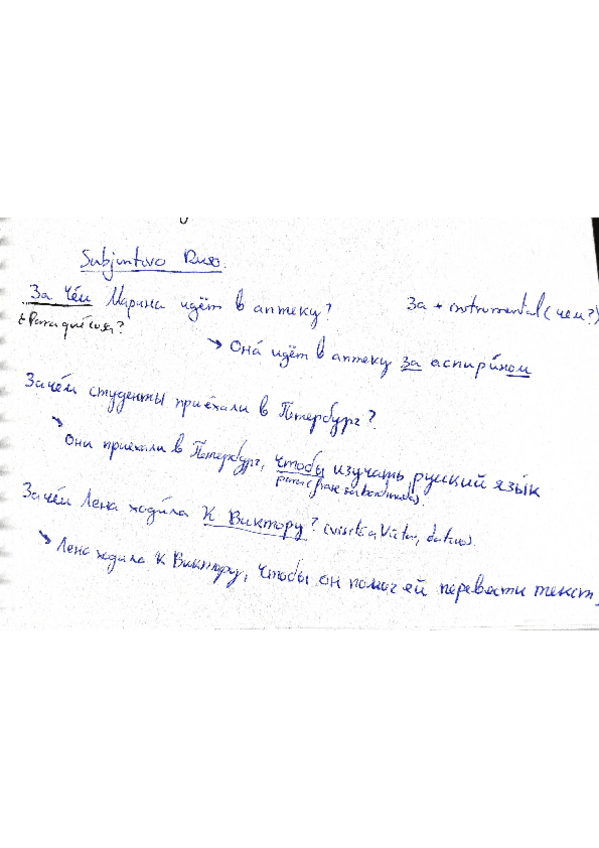 Subjuntivo Ruso.
За чéм Марина идёт в аптеку? За + instrumental (чем?)
¿Para qué cosa?
→ Онá идёт в аптеку за аспирúном
Зачéм студенты приéхали в Петербург?
→ Они приехали в Петербург, чтобы изучать русский язы́к
para (frase subordinada).
Зачéм Лена ходúла к Виктору? (visita a Víctor, dativo).
→ Лена ходила к Виктору, чтобы он помог ей перевести текст.